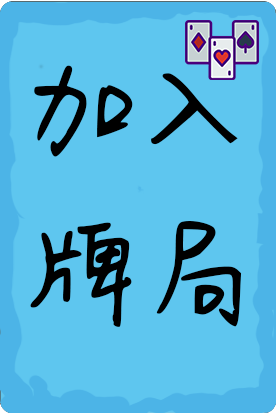 加入
牌局